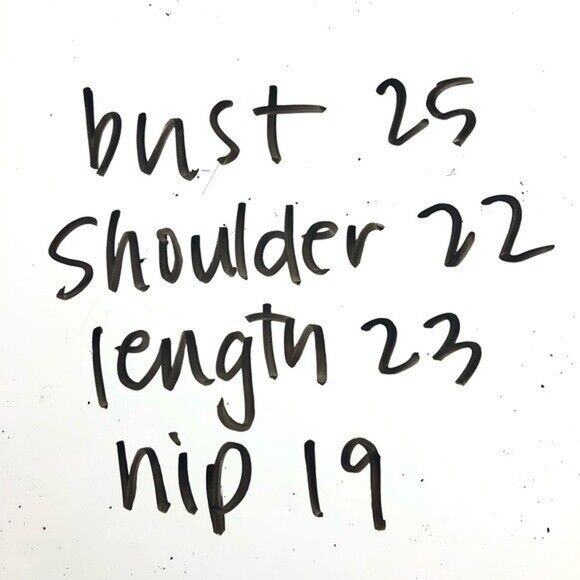 bust 25
shoulder 22
length 23
hip 19